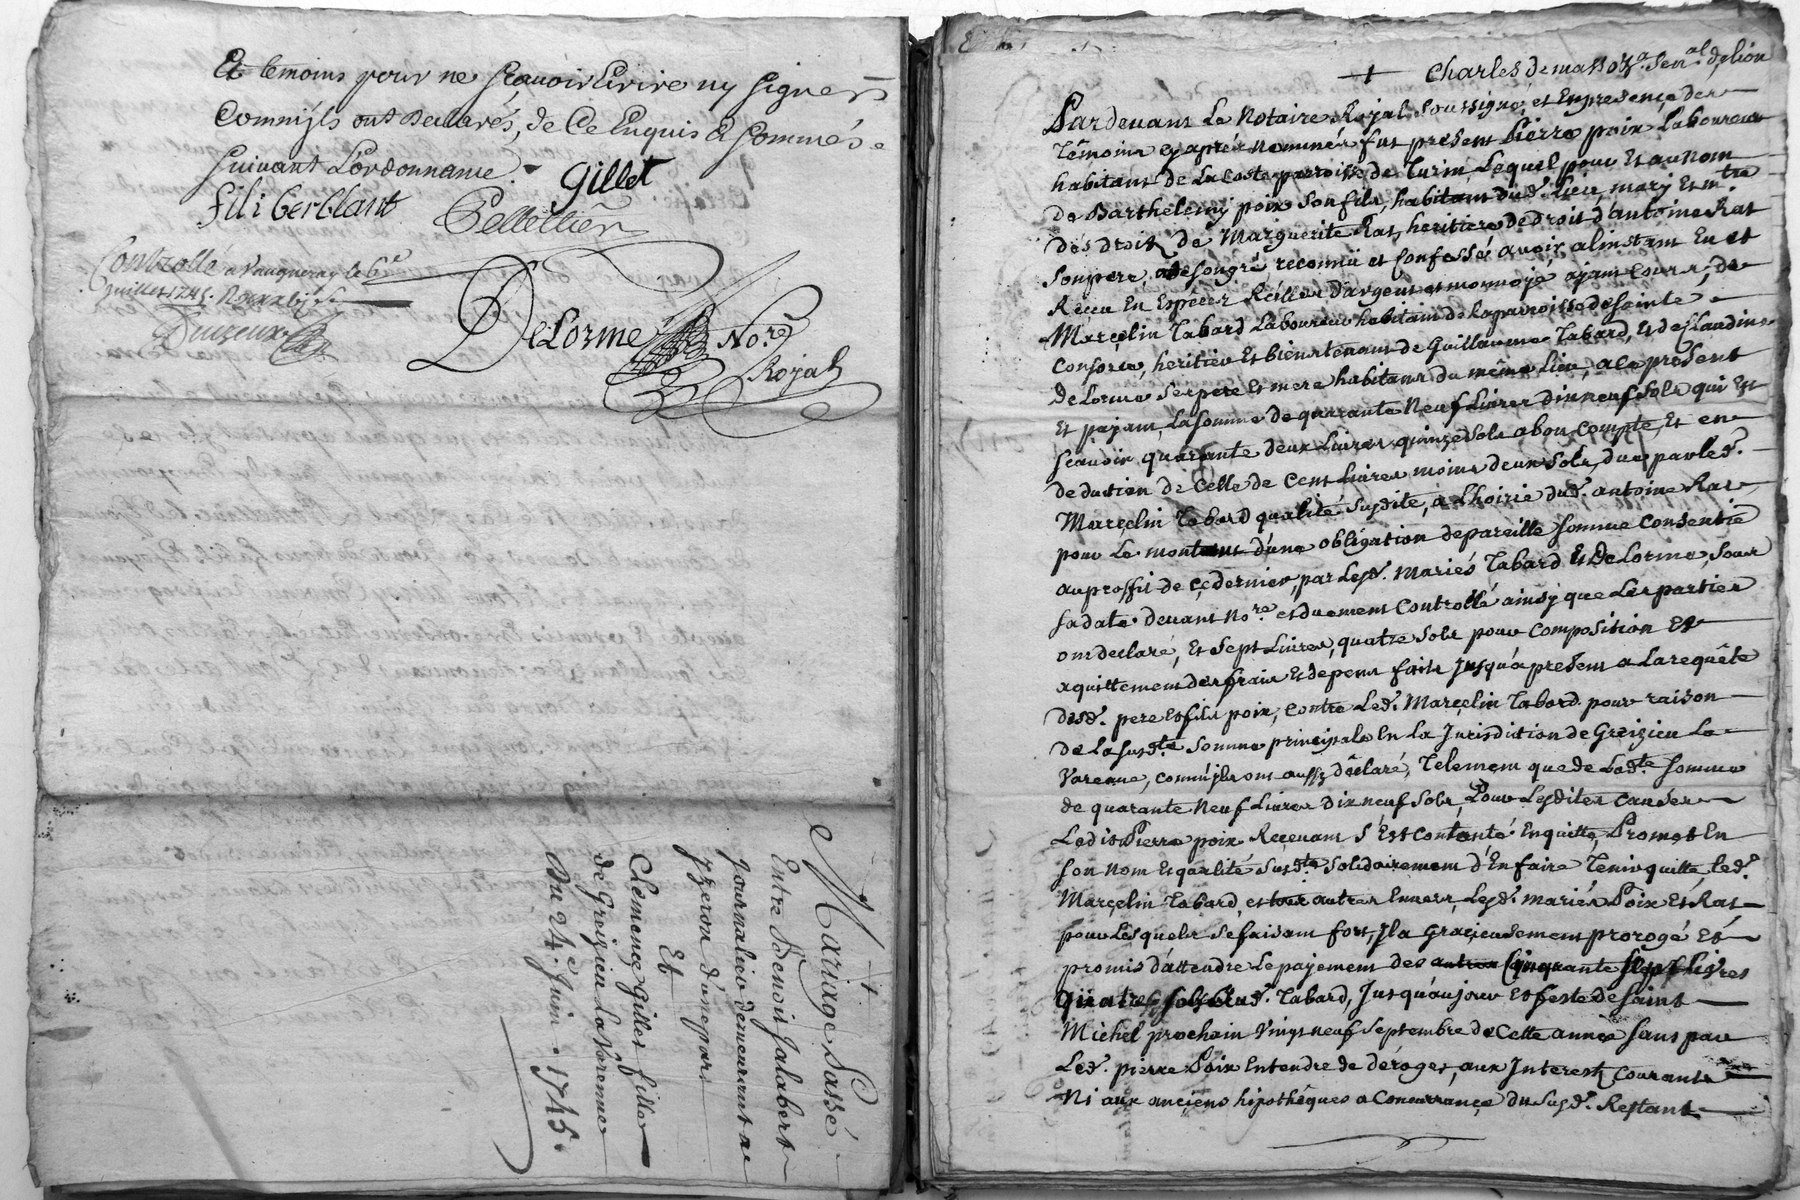 Et temoins pour ne scavoir Ecrire ny signer
Comm'jls ont Declarés, de Ce Enquis & sommés
suivant L'ordonnance. gillet
fili berblant Pelletier
Controllé a Vaugneray le 6e
Juillet 1745. Reçu
DeLorme No.re
Royal
Mariage Passé
Entre Benoit Jalabert
Journalier demeurant a
Yzeron d'une part
Et
Clemence Gillet fille
de Greizieu La Varenne
Du 24e Juin. 1745.
Charles de masso sen.al de Lion
Pardevant Le Notaire Royal soussigné, et En presence des
Témoins cy aprés nommés fut present Pierre poix Laboureur
habitant de La Coste parroisse de Turin, Lequel pour Et au nom
de Barthelemy poix son fils, habitant dud. Lieu, mary Et m.tre
des droits de Marguerite Rat, heritiere de droit d'antoine Rat
son pere, a de son gré reconnu et Confessé avoir a l'instant Eu et
Receu En Especes Réelles d'argent et monnoje ajant cours, de
Marçelin Tabard Laboureur habitant de La parroisse de sainte
Consorce, heritier Et bien tenant de Guillaume Tabard, Et de Claudine
DeLorme ses pere Et mere habitans du même Lieu, a ce present
Et pajant, La somme de quarante Neuf Livres dix neuf sols qui Est
scavoir quarante deux Livres quinze sols a bon compte, Et en
deduction de Celle de Cent Livres moins deux sols, due par led.
Marçelin Tabard qualité susdite, a L'hoirie dud. antoine Rat
pour Le montant d'une obligation de pareille somme Consentie
au proffit de ce dernier, par Lesd. Mariés Tabard Et DeLorme, sous
sa date devant No.re et duement Controllé ainsy que Les parties
ont declaré, Et sept Livres, quatre sols pour composition Et
aquittement des frais Et depens faits Jusqu'a present a La requête
desd. pere et fils poix, contre Led. Marçelin Tabard pour raison
de La susd.te somme principale En La Jurisdiction de Greizieu La
Varenne, comm'jls ont aussy déclaré, Telement que de Lad.te somme
de quarante neuf Livres dix neuf sols, Pour Lesdites causes
Ledit Pierre poix Recevant s'Est contanté En quitte, Promet En
son nom Et qualité susd.te solidairement d'En faire Tenir quitte, led.
Marçelin Tabard, et tout autres Envers, Lesd. mariés Poix Et Rat
pour Lesquels se faisant fort, Jl a gracieusement prorogé Et
promis d'attendre Le pajement des autres Cinquante sept Livres
Quatre sols Dud. Tabard, Jusqu'au jour et feste de saint
Michel prochain Vingt neuf septembre de Cette année sans par
Led. pierre Poix Entendre de déroger, aux Interest courants
Ni aux anciens hipothêques a Concurrance du susd. Restant